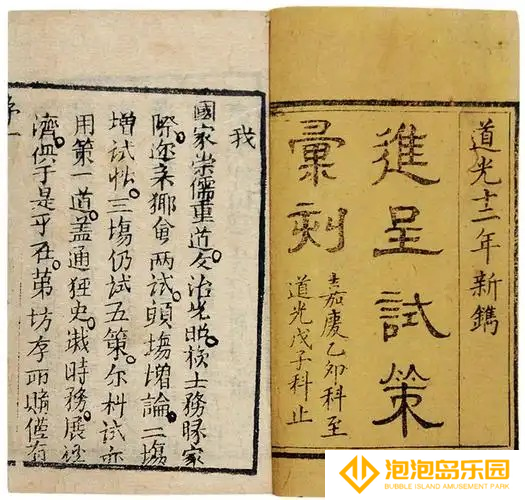 道光十二年新鐫
進呈試策
彙刻
嘉慶乙卯科至
道光戊子科止
我
國家崇儒重道文治光昭校士務
際邇来鄉會两試頭塲增論二塲
增試帖三塲仍試五策 科試亦
用第一道蓋通經史裁時務展經
濟俱于是乎在第坊存 僅有
序一
泡泡岛乐园
BUBBLE ISLAND AMUSEMENT PARK